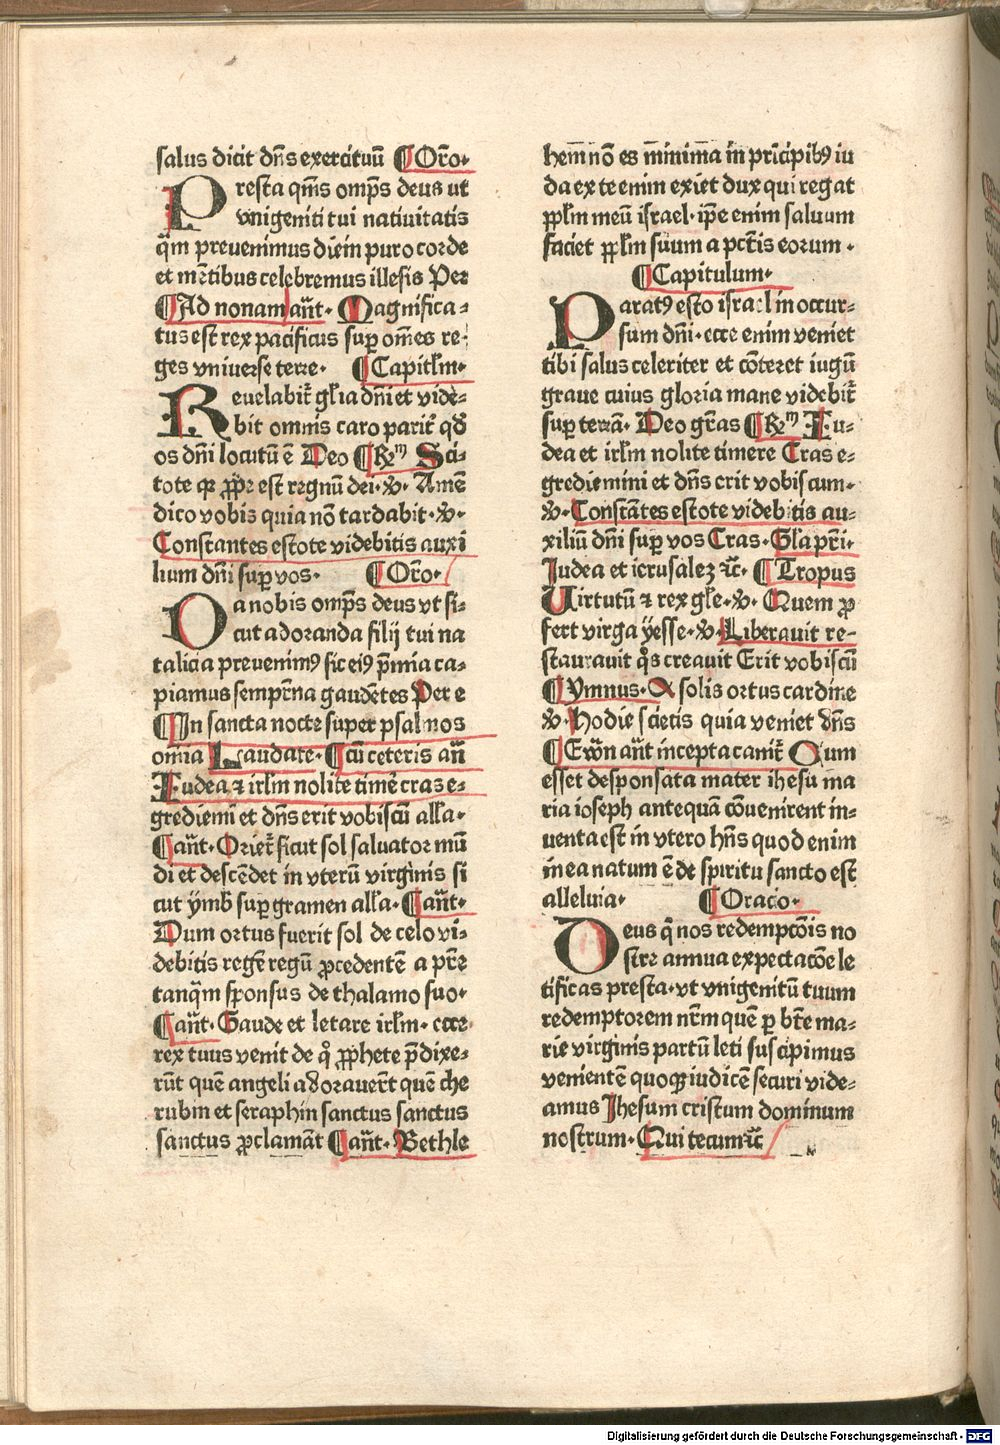 salus dicit dn̄s exercituū ¶Or̄o·
Presta qm̄s omp̄s deus ut
vnigeniti tui natiuitatis
q̄m preuenimus diem puro corde
et mētibus celebremus illesis Per
¶Ad nonam añt· Magnifica-
tus est rex pacificus sup om̄es re-
ges vniuerse terre· ¶Capitl̄m·
Reuelabit̄ gl̄ia dn̄i et vide-
bit omnis caro parit̄ qd̄
os dn̄i locutū ē Deo ¶Rm̄ Sci-
tote qꝛ ꝓpe est regnū dei·v· Amē
dico vobis quia nō tardabit·v·
Constantes estote videbitis auxi
lium dn̄i sup vos· ¶Or̄o·
Da nobis omp̄s deus vt si-
cut adoranda filij tui na
talicia preuenimꝰ sic eiꝰ p̄mia ca-
piamus sempit̄na gaudētes Per e
¶In sancta nocte super psalmos
om̄ia Laudate· ¶Cū ceteris añ
Iudea ⁊ irl̄m nolite timē cras e-
grediemī et dn̄s erit vobiscū all̄a·
¶añt· Oriet̄ sicut sol saluator mū
di et descēdet in vterū virginis si
cut ymb sup gramen all̄a· ¶añt·
Dum ortus fuerit sol de celo vi-
debitis regē regū ꝓcedentē a pr̄e
tanq̄m sponsus de thalamo suo·
¶añt· Gaude et letare irl̄m· ecce
rex tuus venit de q̊ ꝓphete p̄dixe-
rūt quē angeli adorauer̄t quē che
rubin et seraphin sanctus sanctus
sanctus ꝓclamāt ¶añt· Bethle
hem nō es minima in prīcipibꝰ iu
da ex te enim exiet dux qui regat
ppl̄m meū israel· ip̄e enim saluum
faciet ppl̄m suum a pctīs eorum·
¶Capitulum·
Paratꝰ esto israel in occur-
sum dn̄i· ecce enim veniet
tibi salus celeriter et cōteret iugū
graue cuius gloria mane videbit̄
sup terrā· Deo gr̄as ¶Rm̄ Iu-
dea et irl̄m nolite timere Cras e-
grediemini et dn̄s erit vobiscum·
v· Constātes estote videbitis au-
xiliū dn̄i sup vos Cras· Gl̄a pr̄i·
Iudea et ierusalez ⁊c̄· ¶Tropus
Uirtutū ⁊ rex gl̄e·v· Quem ꝓ
fert virga yesse·v· Liberauit re-
staurauit q̊s creauit Erit vobiscū
¶Ymnus· A solis ortus cardine
v· Hodie scietis quia veniet dn̄s
¶Ewn̄ añt incepta canit̄ Qum
esset desponsata mater ihesu ma
ria ioseph antequā cōuenirent in-
uenta est in vtero hn̄s quod enim
in ea natum ē de spiritu sancto est
alleluia· ¶Oracio·
Deus q̄ nos redemptōis no
stre annua expectacōe le
tificas presta· vt vnigenitū tuum
redemptorem nr̄m quē p bt̄e ma-
rie virginis partū leti suscipimus
venientē quoqꝫ iudicē securi vide-
amus Ihesum cristum dominum
nostrum· Qui tecum ⁊c̄
Digitalisierung gefördert durch die Deutsche Forschungsgemeinschaft - DFG